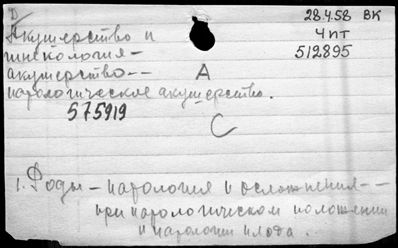 28.4.58 ВК
Акушерство и
Чит
гинекология-
512895
акушерство--
А
патологическое акушерство.
575919
С
1. Роды - патология и осложнения--
при патологическом положении
и патологии плода.